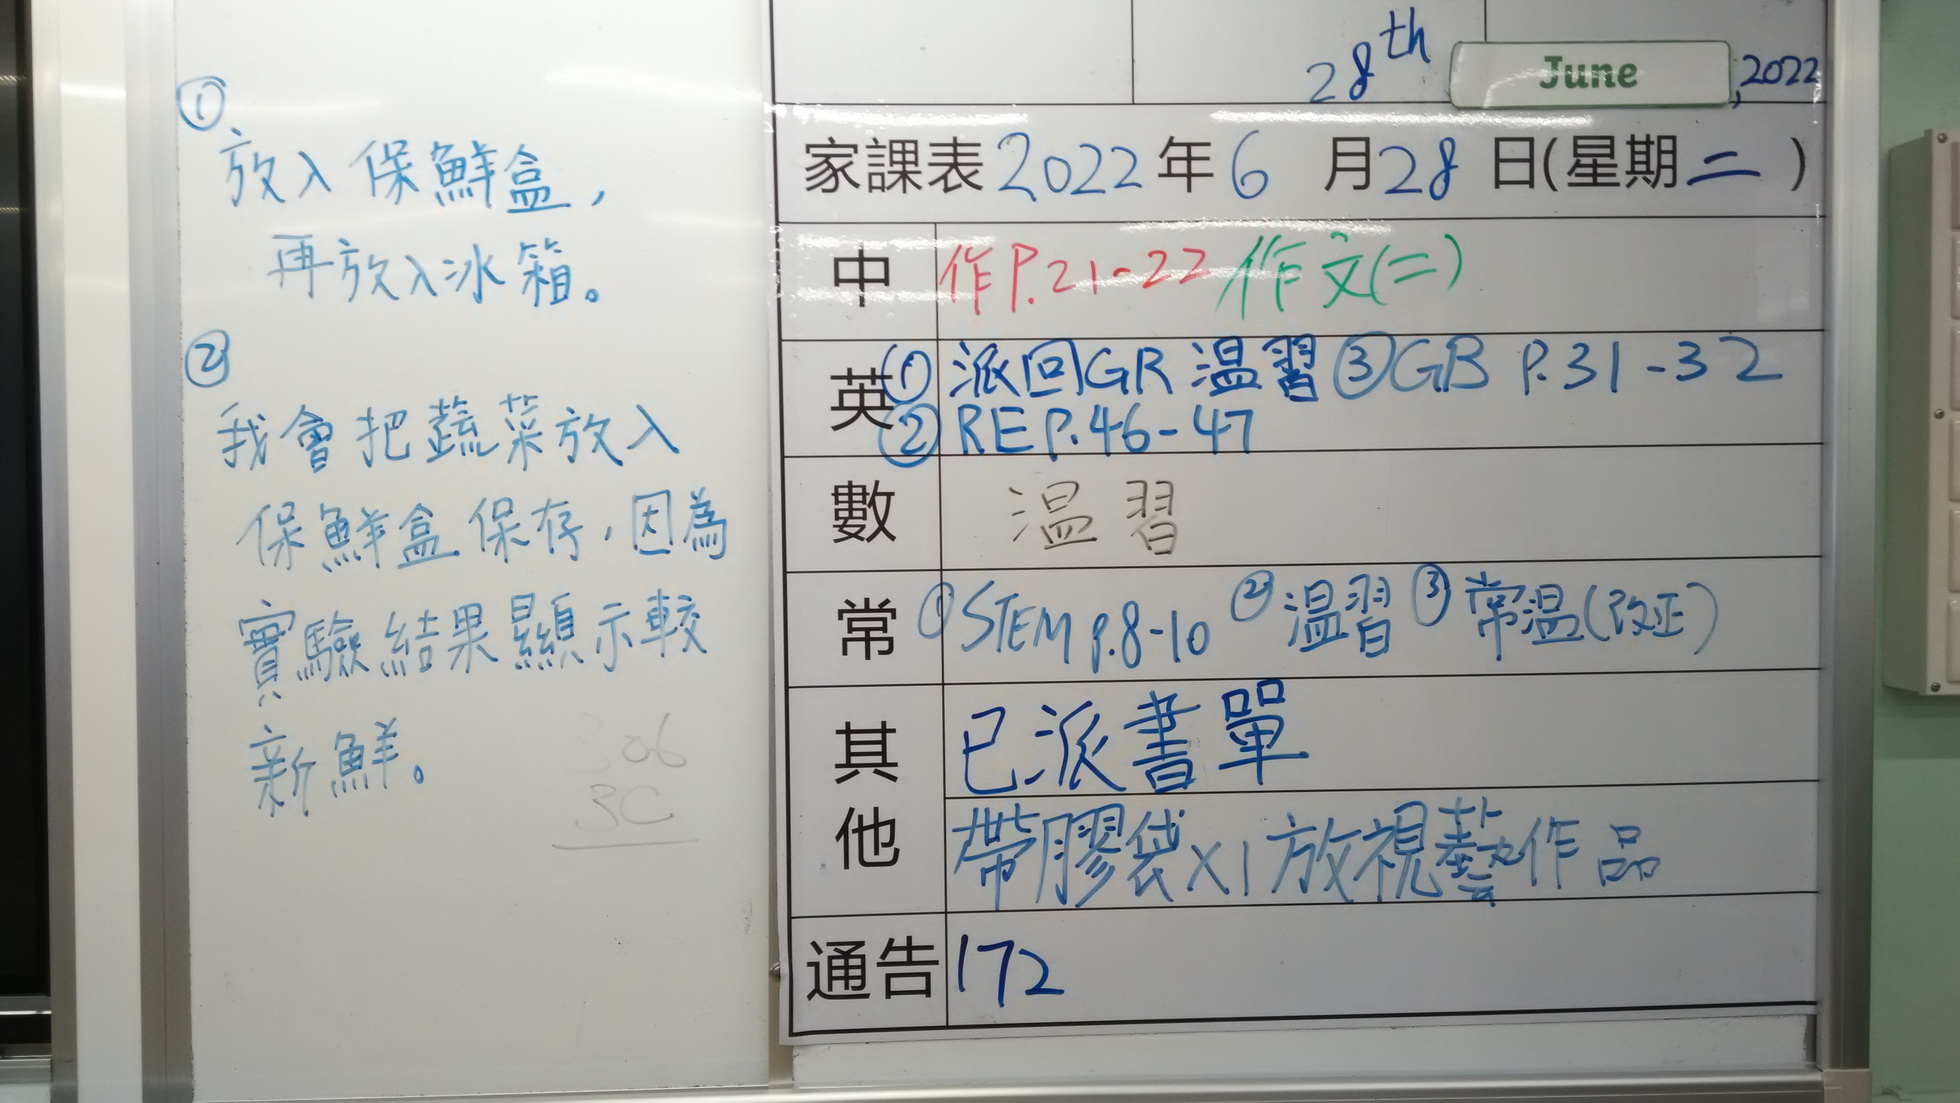 ①
放入保鮮盒，
再放入冰箱。
②
我會把蔬菜放入
保鮮盒保存，因為
實驗結果顯示較
新鮮。
06
3C
28th June, 2022
家課表2022年6月28日(星期二)
中 作P.21-22 作文(二)
英 ①派回GR 溫習 ③GB P.31-32
②RE P.46-47
數 溫習
常 ①STEM p.8-10 ②溫習 ③常溫(改正)
其他 已派書單
帶膠袋x1放視藝作品
通告 172